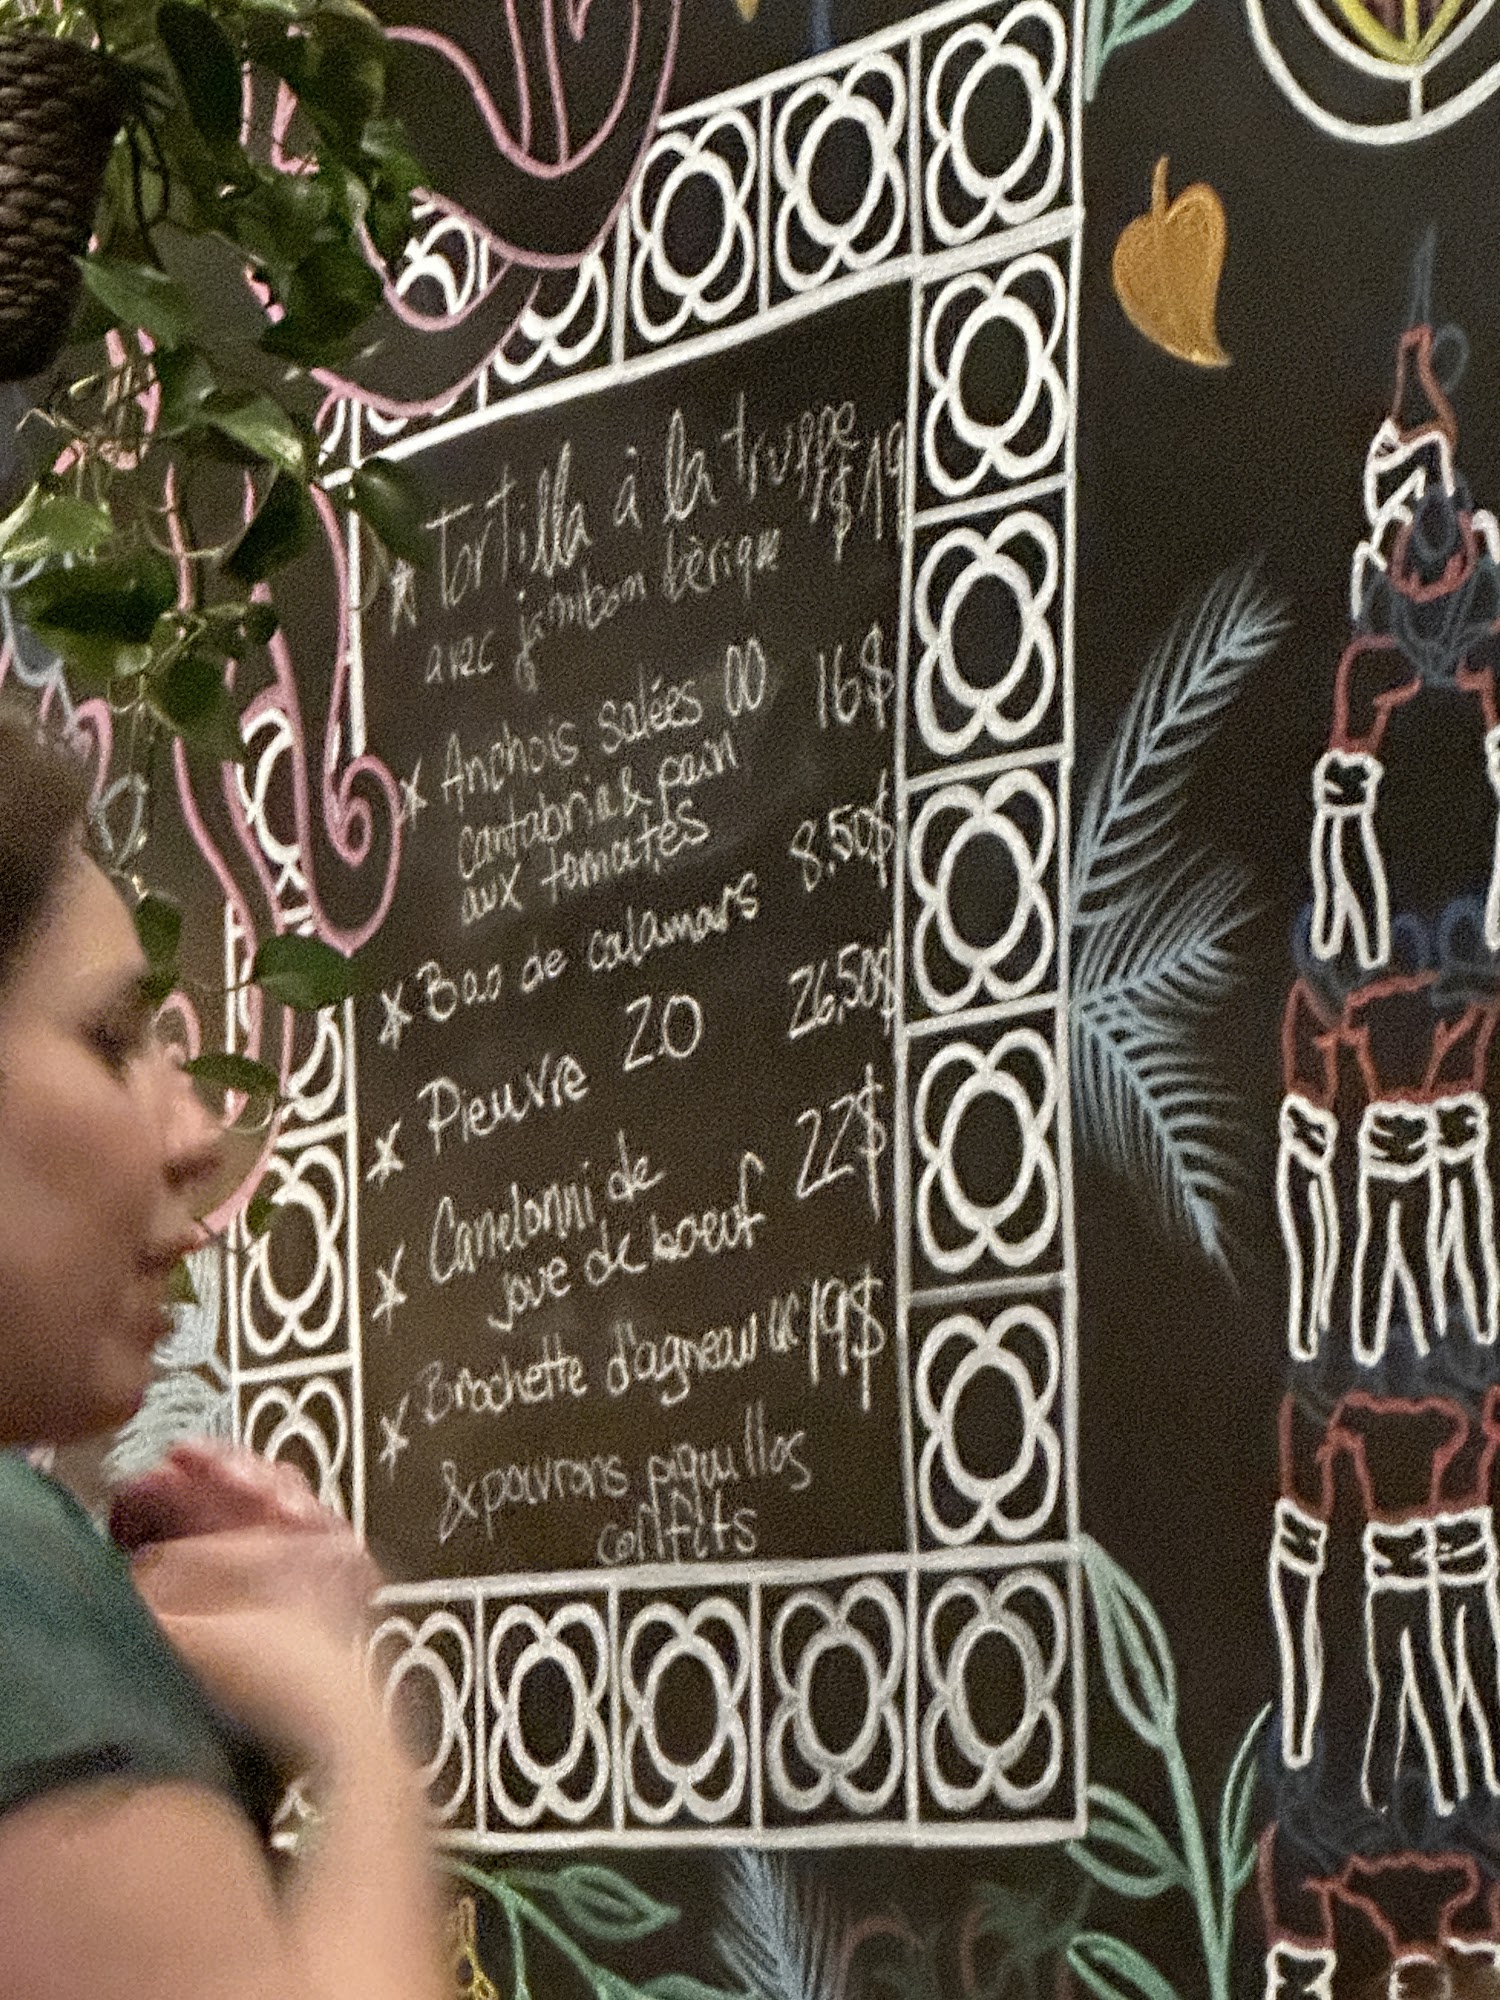 * Tortilla à la truffe $19
avec jambon bèrique
* Anchois salées 00 16$
cantabria & pain
aux tomates
* Bao de calamars 8.50$
* Pieuvre 2.0 26.50$
* Canelonni de
joue de boeuf 22$
* Brochette d'agneau 19$
& poivrons piquillos
confits